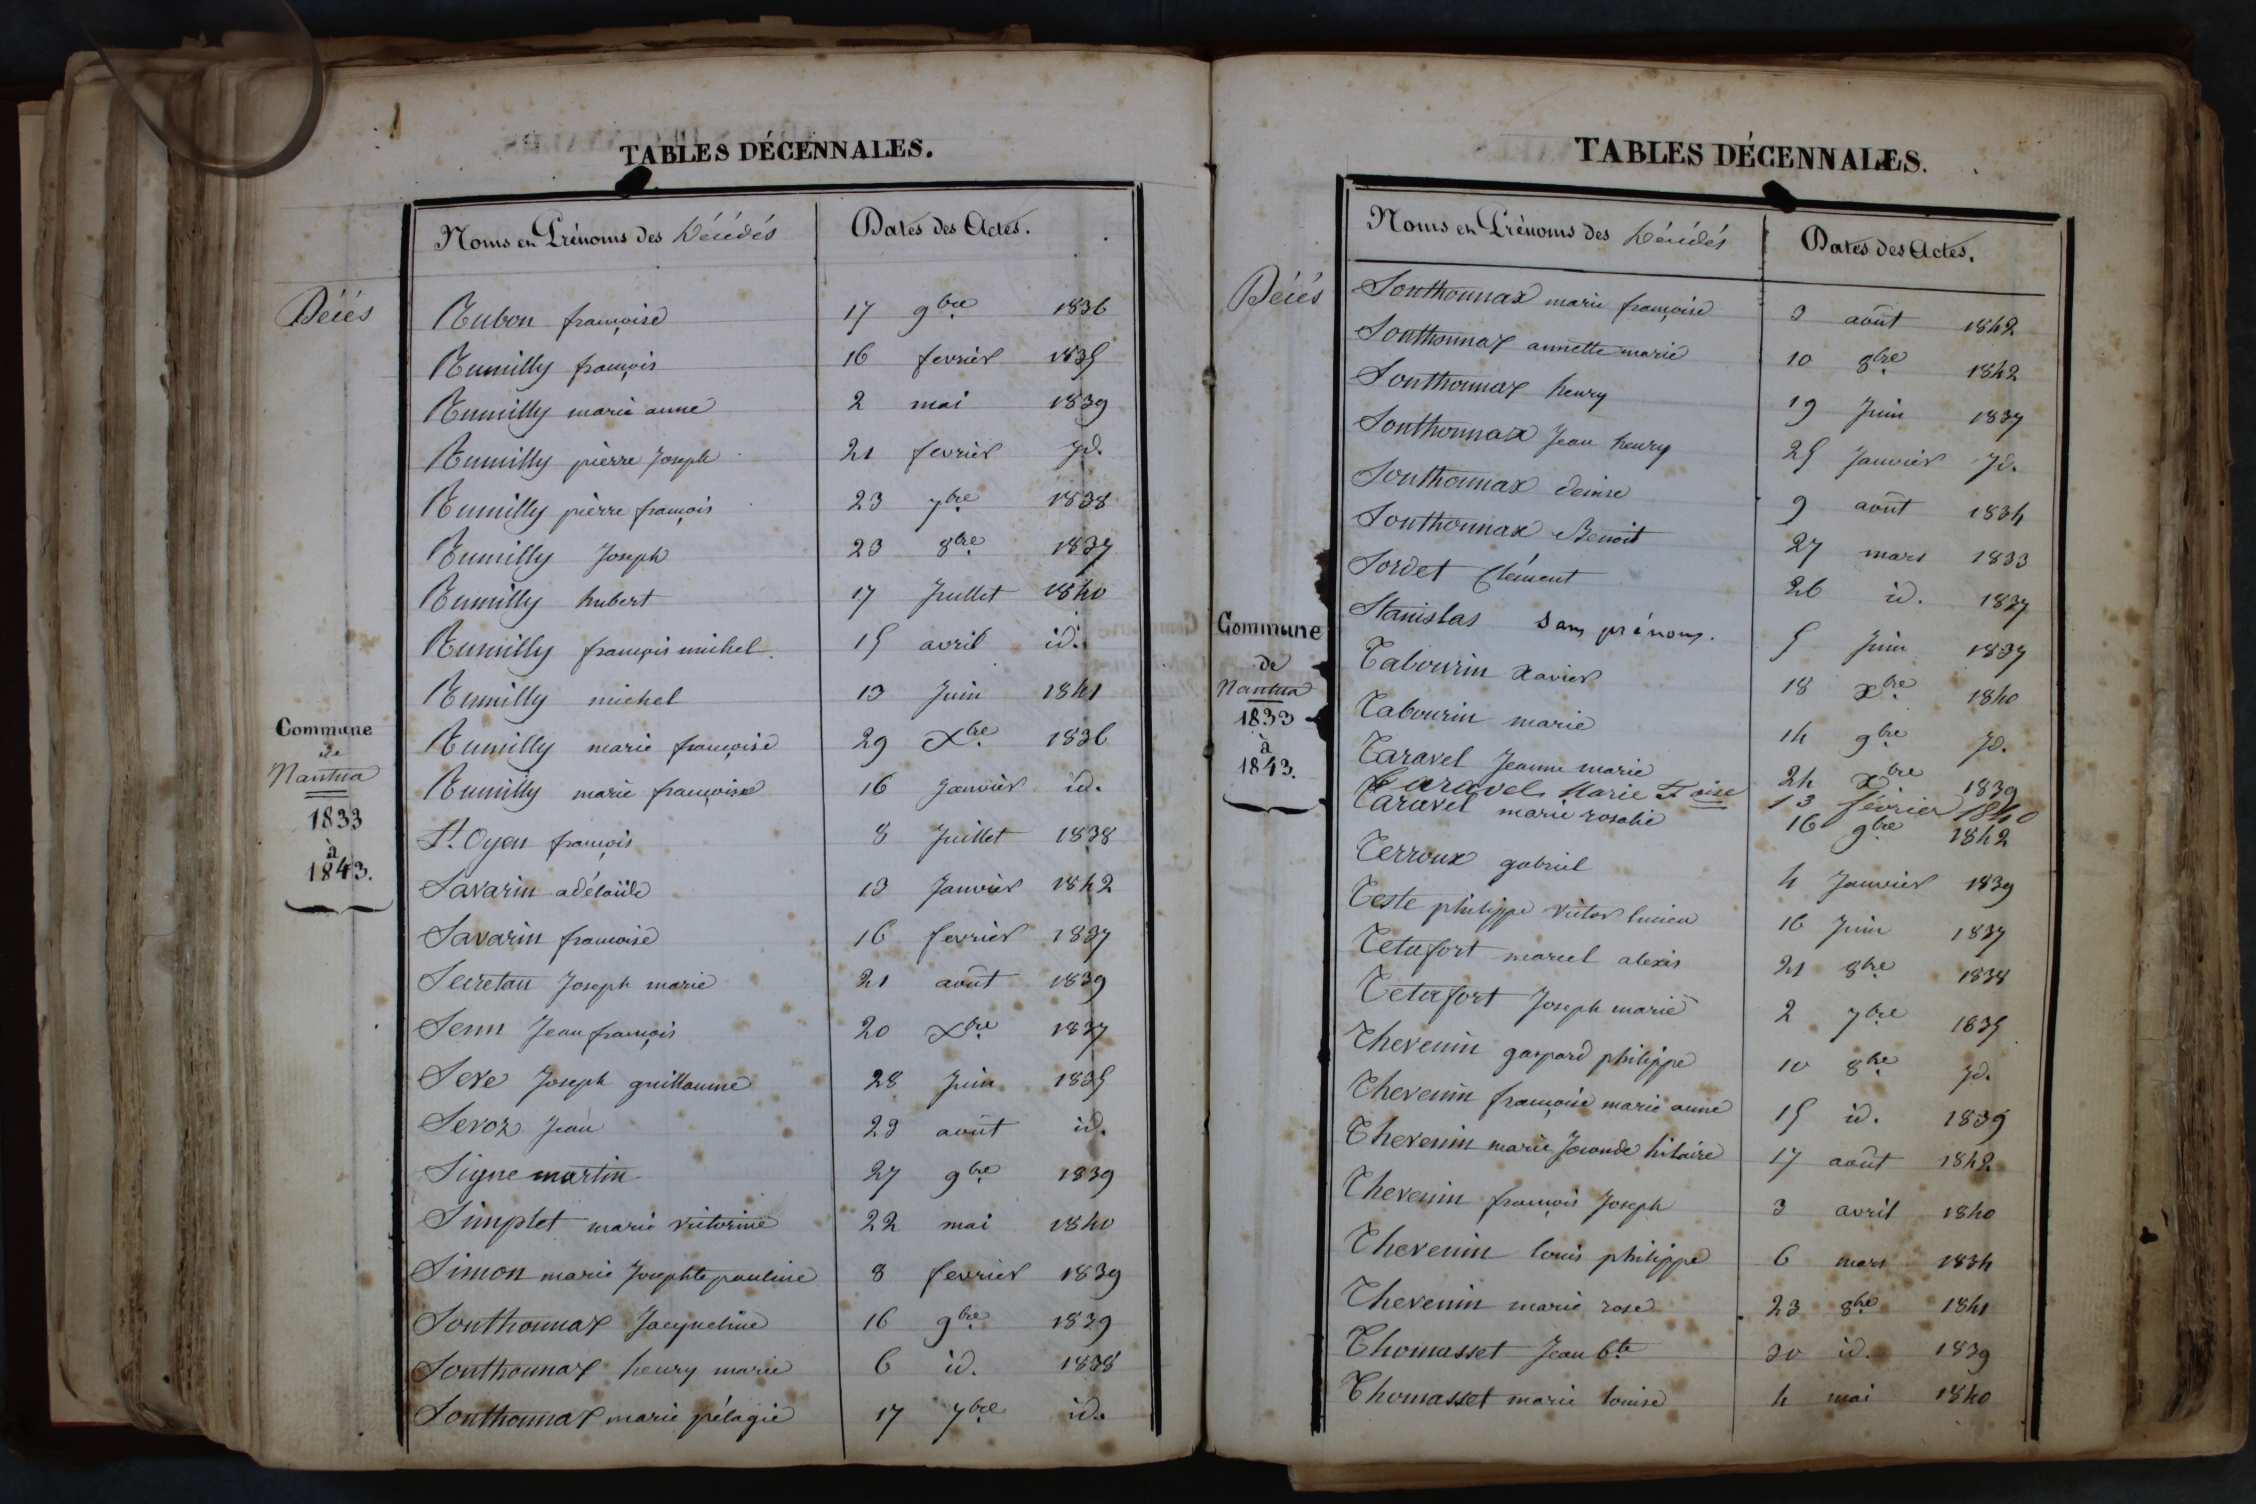 TABLES DÉCENNALES.
Noms et Prénoms des Décédés Dates des Actes.
Décés
Commune
de
Nantua
1833
à
1843.
Rubon françoise 17 9bre 1836
Rumilly françois 16 fevrier 1835
Rumilly marie anne 2 mai 1839
Rumilly pierre Joseph 21 fevrier Id.
Rumilly pierre françois 23 7bre 1838
Rumilly Joseph 23 8bre 1837
Rumilly hubert 17 Juillet 1840
Rumilly françois michel 15 avril id.
Rumilly michel 13 Juin 1841
Rumilly marie françoise 29 Xbre 1836
Rumilly marie françoise 16 Janvier id.
St. Oyen françois 8 Juillet 1838
Savarin adélaïde 13 Janvier 1842
Savarin francoise 16 fevrier 1837
Secretan Joseph marie 21 août 1839
Senn Jean françois 20 Xbre 1837
Seve Joseph guillaume 28 Juin 1835
Sevoz Jean 29 août id.
Signe martin 27 9bre 1839
Simplet marie victorine 22 mai 1840
Simon marie Josephte pauline 8 fevrier 1839
Sonthonnax Jacqueline 16 9bre 1839
Sonthonnax henry marie 6 id. 1838
Sonthonnax marie pélagie 17 7bre id.
TABLES DÉCENNALES.
Noms et Prénoms des Décédés Dates des Actes.
Décés
Commune
de
Nantua
1833
à
1843.
Sonthonnax marie françoise 3 août 1842
Sonthonnax annette marie 10 8bre 1842
Sonthonnax henry 19 Juin 1837
Sonthonnax Jean henry 25 Janvier Id.
Sonthonnax denise 9 août 1834
Sonthonnax Benoit 27 mars 1833
Sordet Clément 26 id. 1837
Stanislas sans prénoms. 5 Juin 1837
Tabourin Xavier 18 Xbre 1840
Tabourin marie 14 9bre Id.
Taravel Jeanne marie 24 Xbre 1839
Taravel Marie Foise 13 février 1840
Taravel marie rosalie 16 9bre 1842
Terroux gabriel 4 Janvier 1839
Teste philippe victor lucien 16 Juin 1837
Tetafort marcel alexis 21 8bre 1838
Tetafort Joseph marie 2 7bre 1835
Thevenin gaspard philippe 10 8bre Id.
Thevenin françoise marie anne 15 id. 1839
Thevenin marie Joconde hilaire 17 août 1842
Thevenin françois Joseph 3 avril 1840
Thevenin louis philippe 6 mars 1834
Thevenin marie rose 23 8bre 1841
Thomasset Jean bte 30 id. 1839
Thomasset marie louise 4 mai 1840